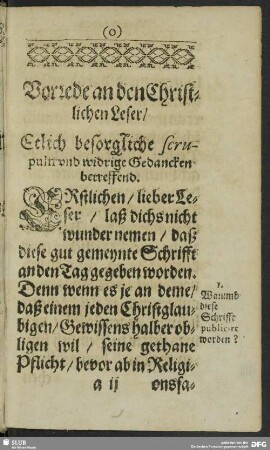 (o)
Vorrede an den Christ-
lichen Leser/
Etlich besorgliche scru-
puln vnd widrige Gedancken
betreffend.
ERstlichen / lieber Le-
ser / laß dichs nicht
wunder nemen / daß
diese gut gemeynte Schrifft
an den Tag gegeben worden.
Denn wenn es je an deme/
daß einem jeden Christglau-
bigen / Gewissens halber ob-
ligen wil / seine gethane
Pflicht / bevor ab in Religi-
a ij onssa-
1.
Warumb
diese
Schrifft
publicirt
worden?
SLUB